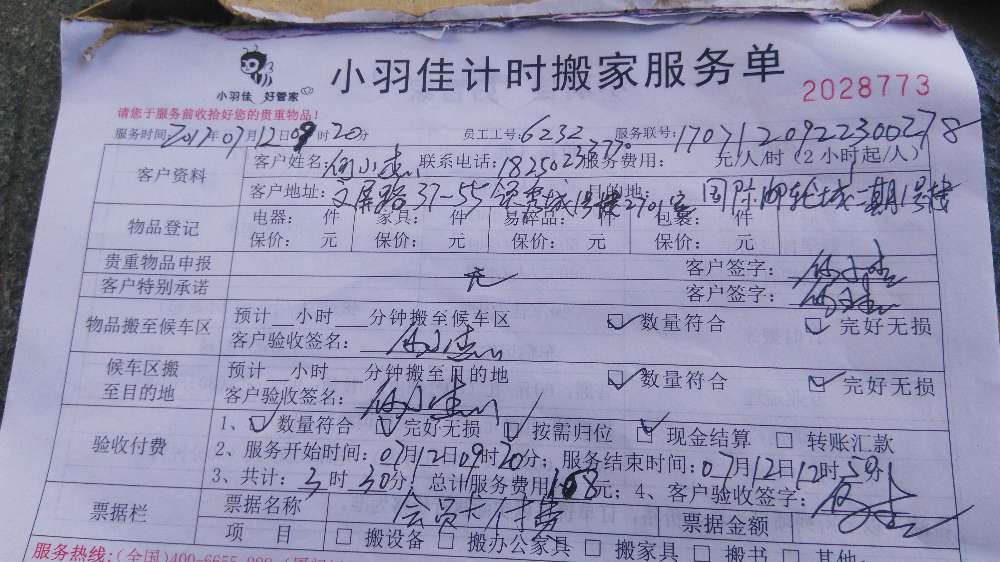 小羽佳 好管家
小羽佳计时搬家服务单
2028773
请您于服务前收拾好您的贵重物品!
服务时间2017年07月12日09时20分 员工工号:6232 服务联号:1707120922300278
客户资料 客户姓名: 联系电话: 服务费用: 元/人/时(2小时起/人)
客户地址:文屏路37-55 目的地: 国际邮轮城二期1号楼
物品登记 电器: 件 家具: 件 易碎品: 件 包裹: 件
保价: 元 保价: 元 保价: 元 保价: 元
贵重物品申报 无 客户签字:
客户特别承诺 客户签字:
物品搬至候车区 预计__小时___分钟搬至候车区 ☑数量符合 ☑完好无损
客户验收签名:
候车区搬至目的地 预计__小时___分钟搬至目的地 ☑数量符合 ☑完好无损
客户验收签名:
验收付费 1、☑数量符合 ☑完好无损 ☑按需归位 ☑现金结算 □转账汇款
2、服务开始时间:07月12日09时20分;服务结束时间:07月12日12时50分
3、共计:3时30分;总计服务费用 元;4、客户验收签字:
票据栏 票据名称 会员卡付费 票据金额
项 目 □搬设备 □搬办公家具 □搬家具 □搬书 □其他:
服务热线:(全国)400-6655-